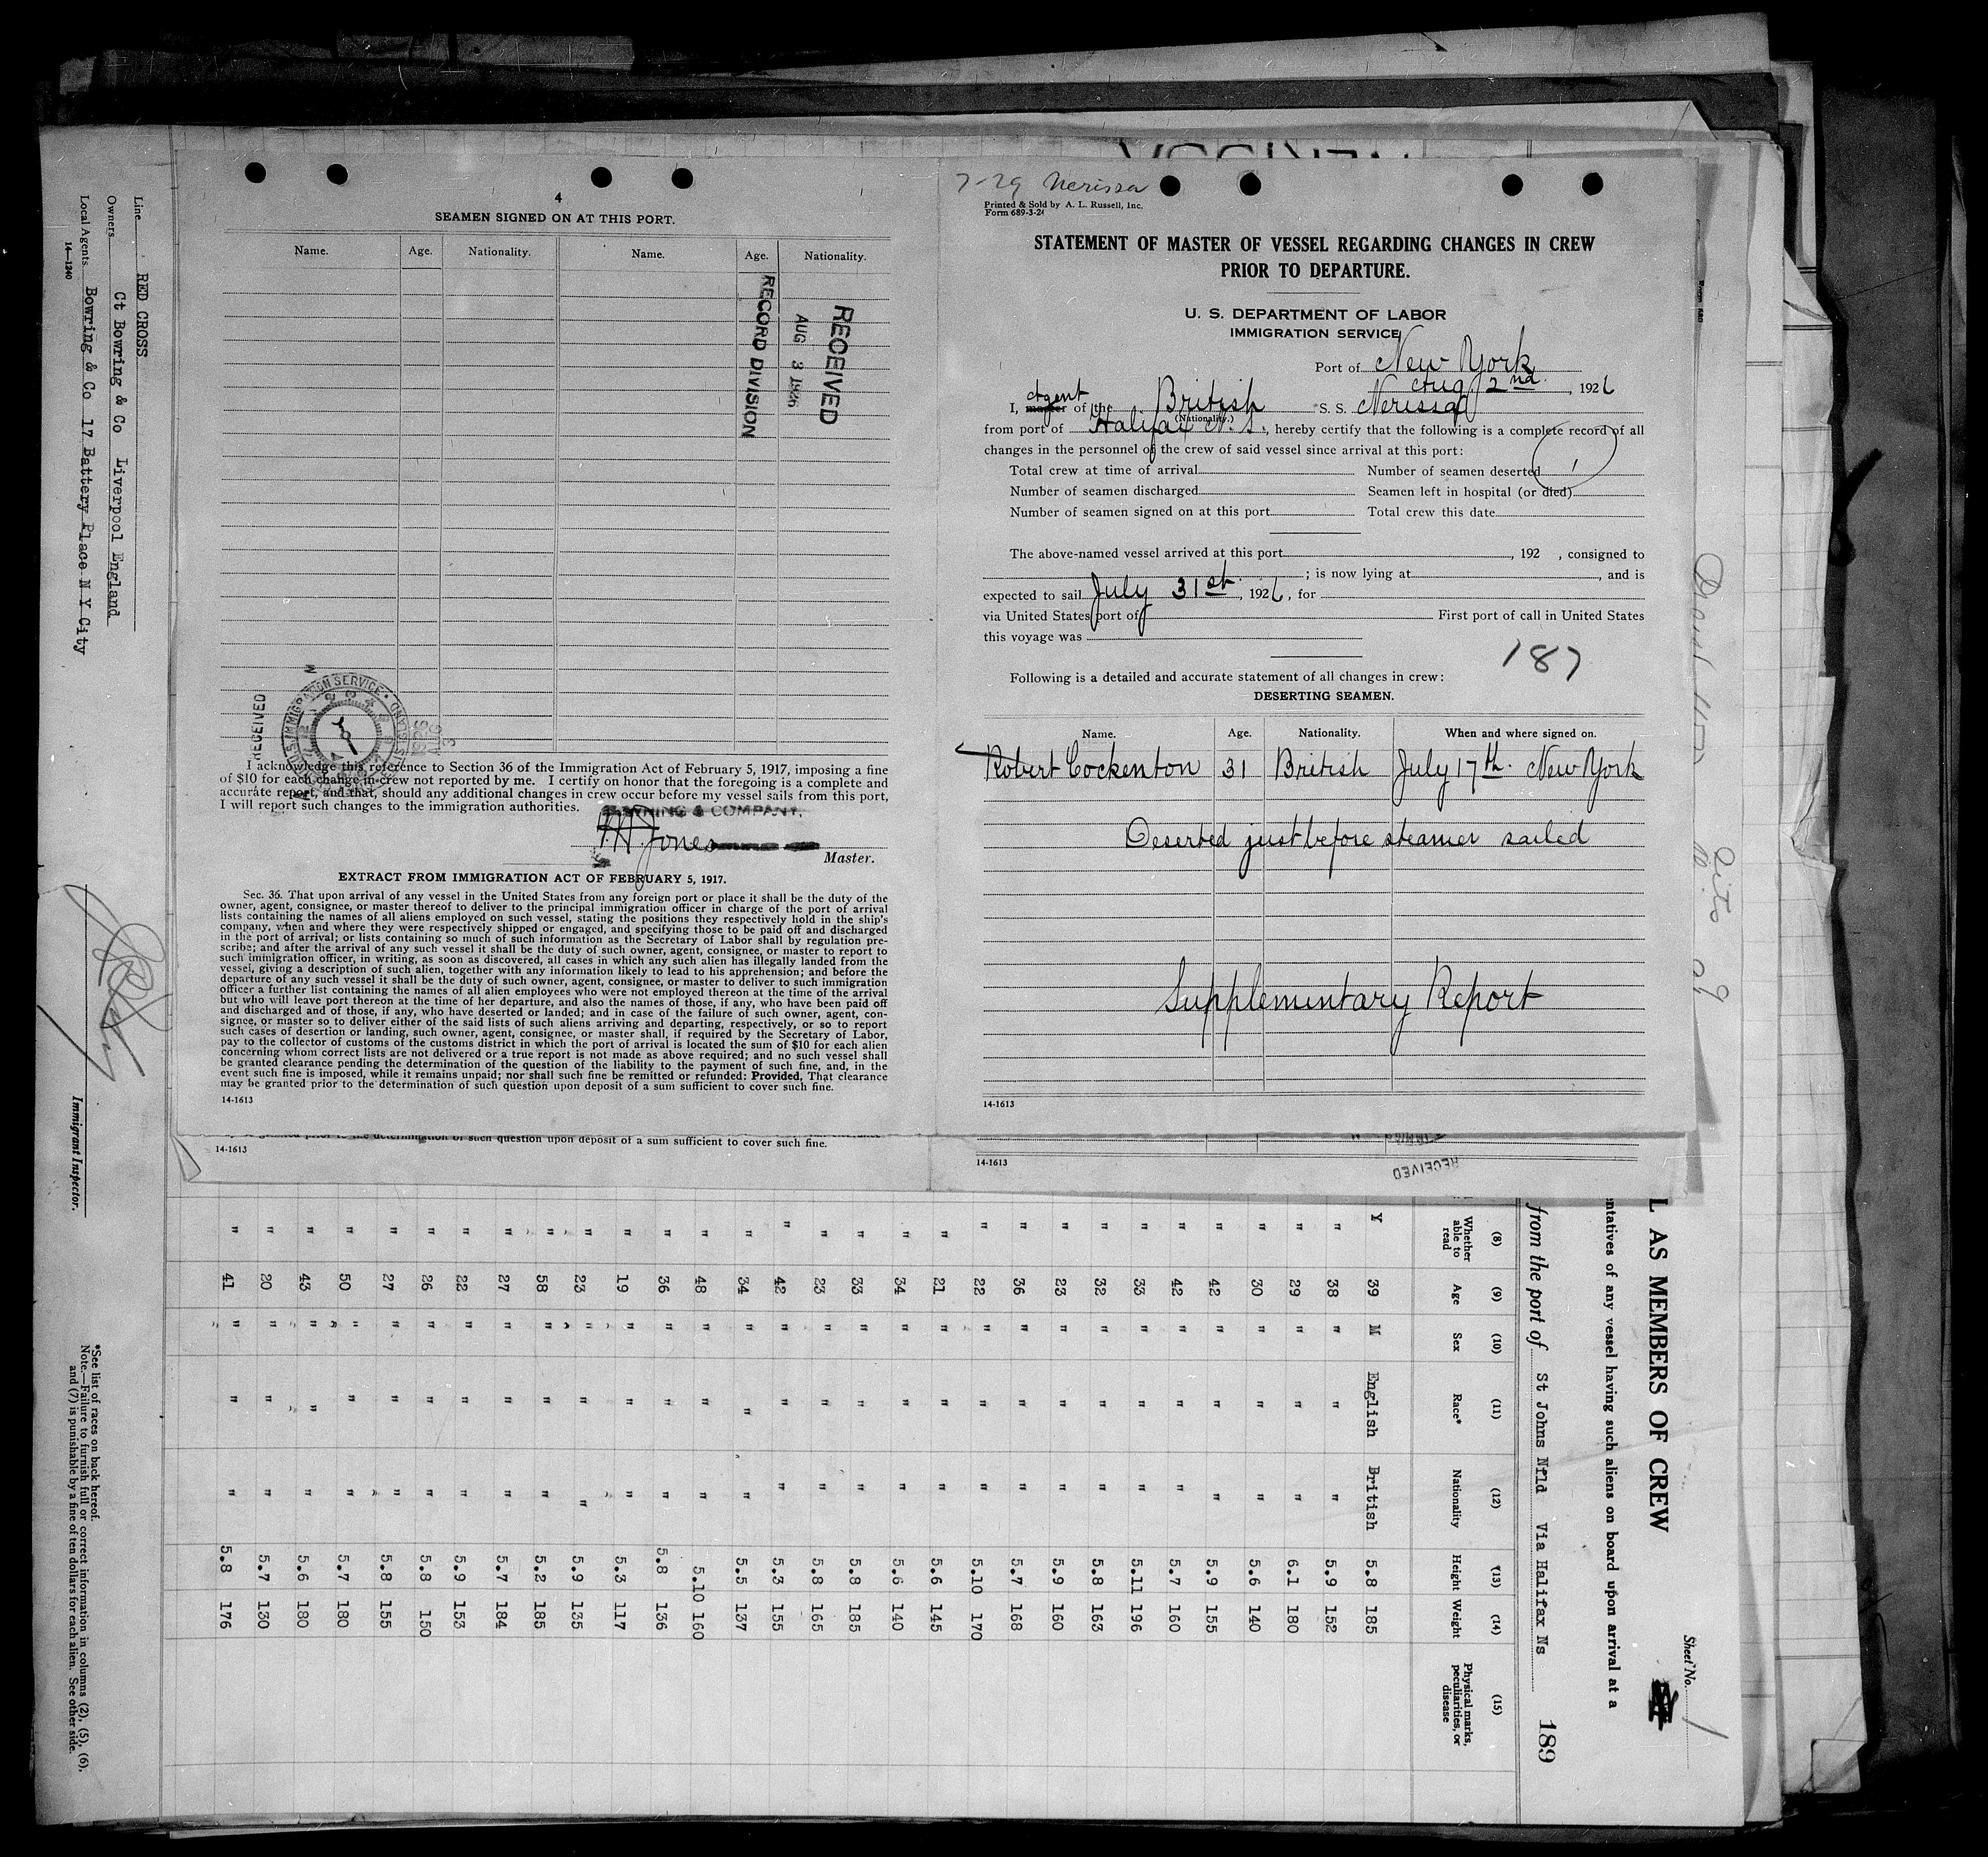 4
SEAMEN SIGNED ON AT THIS PORT.
Name. Age. Nationality. Name. Age. Nationality.
RECEIVED
AUG 3 1926
RECORD DIVISION
RECEIVED
I acknowledge this reference to Section 36 of the Immigration Act of February 5, 1917, imposing a fine
of $10 for each change in crew not reported by me. I certify on honor that the foregoing is a complete and
accurate report, and that, should any additional changes in crew occur before my vessel sails from this port,
I will report such changes to the immigration authorities.
& COMPANY,
Jones
Master.
EXTRACT FROM IMMIGRATION ACT OF FEBRUARY 5, 1917.
Sec. 36. That upon arrival of any vessel in the United States from any foreign port or place it shall be the duty of the
owner, agent, consignee, or master thereof to deliver to the principal immigration officer in charge of the port of arrival
lists containing the names of all aliens employed on such vessel, stating the positions they respectively hold in the ship's
company, when and where they were respectively shipped or engaged, and specifying those to be paid off and discharged
in the port of arrival; or lists containing so much of such information as the Secretary of Labor shall by regulation pre-
scribe; and after the arrival of any such vessel it shall be the duty of such owner, agent, consignee, or master to report to
such immigration officer, in writing, as soon as discovered, all cases in which any such alien has illegally landed from the
vessel, giving a description of such alien, together with any information likely to lead to his apprehension; and before the
departure of any such vessel it shall be the duty of such owner, agent, consignee, or master to deliver to such immigration
officer a further list containing the names of all alien employees who were not employed thereon at the time of the arrival
but who will leave port thereon at the time of her departure, and also the names of those, if any, who have been paid off
and discharged and of those, if any, who have deserted or landed; and in case of the failure of such owner, agent, con-
signee, or master so to deliver either of the said lists of such aliens arriving and departing, respectively, or so to report
such cases of desertion or landing, such owner, agent, consignee, or master shall, if required by the Secretary of Labor,
pay to the collector of customs of the customs district in which the port of arrival is located the sum of $10 for each alien
concerning whom correct lists are not delivered or a true report is not made as above required; and no such vessel shall
be granted clearance pending the determination of the question of the liability to the payment of such fine, and, in the
event such fine is imposed, while it remains unpaid; nor shall such fine be remitted or refunded: Provided, That clearance
may be granted prior to the determination of such question upon deposit of a sum sufficient to cover such fine.
14-1613
7-29 Nerissa
Printed & Sold by A. L. Russell, Inc.
Form 689-3-24
STATEMENT OF MASTER OF VESSEL REGARDING CHANGES IN CREW
PRIOR TO DEPARTURE.
U. S. DEPARTMENT OF LABOR
IMMIGRATION SERVICE
Port of New York
Aug 2nd. , 1926
Agent
I, master of the British S. S. Nerissa
(Nationality.)
from port of Halifax N. S., hereby certify that the following is a complete record of all
changes in the personnel of the crew of said vessel since arrival at this port:
Total crew at time of arrival Number of seamen deserted 1
Number of seamen discharged Seamen left in hospital (or died)
Number of seamen signed on at this port Total crew this date
The above-named vessel arrived at this port , 192 , consigned to
; is now lying at , and is
expected to sail July 31st , 1926, for
via United States port of First port of call in United States
this voyage was
187
Following is a detailed and accurate statement of all changes in crew:
DESERTING SEAMEN.
Name. Age. Nationality. When and where signed on.
Robert Cockenton 31 British July 17th. New York
Deserted just before steamer sailed
Supplementary Report
14-1613
such question upon deposit of a sum sufficient to cover such fine.
14-1613
14-1613
RECEIVED
Line RED CROSS
Owners Ct Bowring & Co Liverpool England
Local Agents Bowring & Co 17 Battery Place N Y City
14-1240
Immigrant Inspector.
*See list of races on back hereof.
Note.—Failure to furnish full or correct information in columns (2), (5), (6),
and (7) is punishable by a fine of ten dollars for each alien. See other side.
Sheet No. 1
L AS MEMBERS OF CREW
ntatives of any vessel having such aliens on board upon arrival at a
from the port of St Johns Nfld Via Halifax Ns 189
(8) (9) (10) (11) (12) (13) (14) (15)
Whether able to read Age Sex Race* Nationality Height Weight Physical marks, peculiarities, or disease
Y 39 M English British 5.8 185
" 38 " " " 5.9 152
" 29 " " " 6.1 180
" 30 " " " 5.6 140
" 42 " " " 5.9 155
" 42 " " " 5.7 160
" 33 " " " 5.11 196
" 32 " " " 5.8 163
" 23 " " " 5.9 160
" 36 " " " 5.7 168
" 22 " " " 5.10 170
" 21 " " " 5.6 145
" 34 " " " 5.6 140
" 33 " " " 5.8 185
" 23 " " " 5.8 165
" 42 " " " 5.3 155
" 34 " " " 5.5 137
" 48 " " " 5.10 160
" 36 " " " 5.8 136
" 19 " " " 5.3 117
" 23 " " " 5.9 135
" 58 " " " 5.2 185
" 27 " " " 5.7 184
" 22 " " " 5.9 153
" 26 " " " 5.8 150
" 27 " " " 5.8 155
" 50 " " " 5.7 180
" 43 " " " 5.6 180
" 20 " " " 5.7 130
" 41 " " " 5.8 176